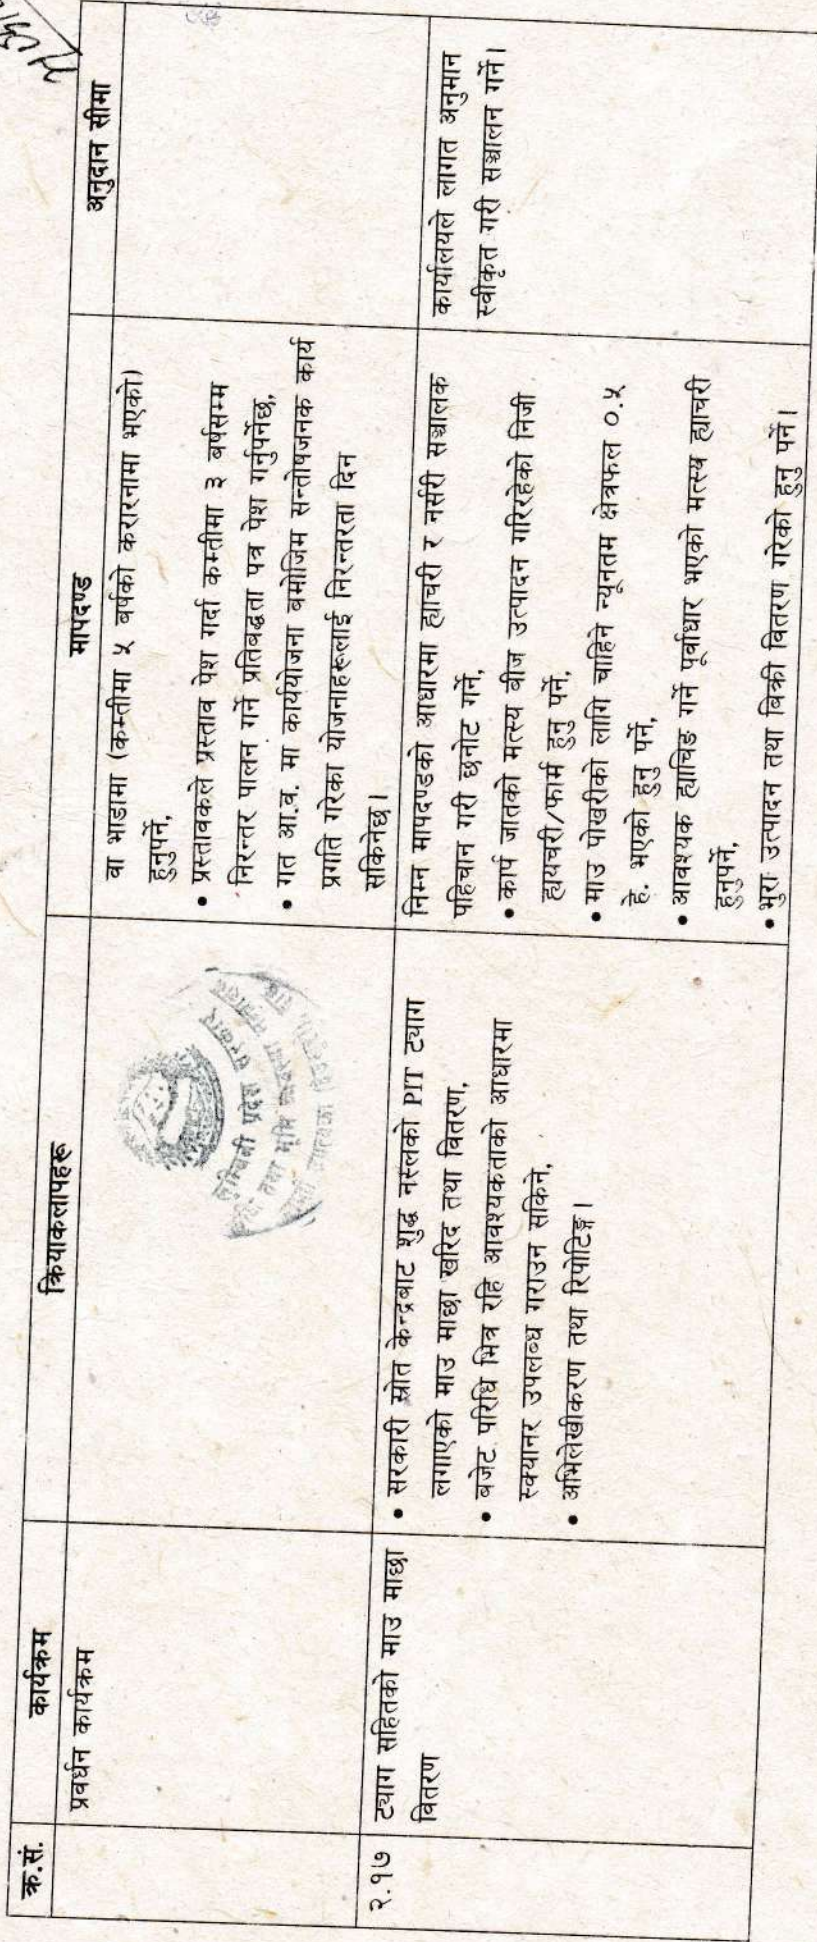 क्र.सं.
कार्यक्रम
क्रियाकलापहरू
मापदण्ड
अनुदान सीमा
प्रवर्धन कार्यक्रम
वा भाडामा (कम्तीमा ५ बर्षको करारनामा भएको)
हुनुपर्ने,
• प्रस्तावकले प्रस्ताव पेश गर्दा कम्तीमा ३ बर्षसम्म
निरन्तर पालन गर्ने प्रतिबद्धता पत्र पेश गर्नुपर्नेछ,
• गत आ.व. मा कार्ययोजना बमोजिम सन्तोषजनक कार्य
प्रगति गरेका योजनाहरूलाई निरन्तरता दिन
सकिनेछ।
लुम्बिनी प्रदेश सरकार
तथा भूमि व्यवस्था मन्त्रालय
२.१७
ट्याग सहितको माउ माछा
वितरण
• सरकारी स्रोत केन्द्रबाट शुद्ध नस्लको PIT ट्याग
लगाएको माउ माछा खरिद तथा वितरण,
• बजेट परिधि भित्र रहि आवश्यकताको आधारमा
स्क्यानर उपलब्ध गराउन सकिने,
• अभिलेखीकरण तथा रिपोटिङ्ग।
निम्न मापदण्डको आधारमा ह्याचरी र नर्सरी सञ्चालक
पहिचान गरी छनोट गर्ने,
• कार्प जातको मत्स्य बीज उत्पादन गरिरहेको निजी
ह्यायचरी/फार्म हुनु पर्ने,
• माउ पोखरीको लागि चाहिने न्यूनतम क्षेत्रफल ०.५
हे. भएको हुनु पर्ने,
• आवश्यक ह्याचिङ गर्ने पूर्वाधार भएको मत्स्य ह्याचरी
हुनुपर्ने,
• भुरा उत्पादन तथा बिक्री वितरण गरेको हुनु पर्ने।
कार्यालयले लागत अनुमान
स्वीकृत गरी सञ्चालन गर्ने।